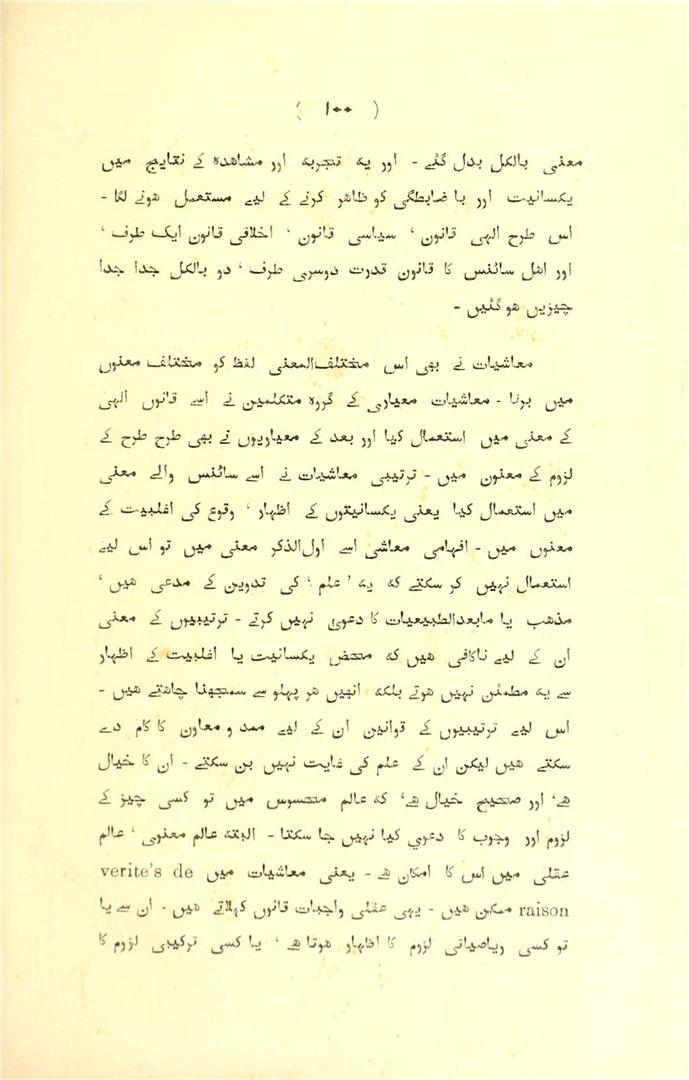 ( ۱۰۰ )
معنی بالکل بدل گئے - اور یہ تجربہ اور مشاھدہ کے نتایج میں
یکسانیت اور با ضابطگی کو ظاھر کرنے کے لیے مستعمل ھونے لگا -
اس طرح الہی قانون ' سیاسی قانون ' اخلاقی قانون ایک طرف '
اور اھل سائنس کا قانون قدرت دوسری طرف ' دو بالکل جدا جدا
چیزیں ھو گئیں -
معاشیات نے بھی اس مختلف‌المعنی لفظ کو مختلف معنوں
میں برتا - معاشیات معیاری کے گروہ متکلمین نے اسے قانوں الہی
کے معنی میں استعمال کیا اور بعد کے معیاریوں نے بھی طرح طرح کے
لزوم کے معنوں میں - ترتیبی معاشیات نے اسے سائنس والے معنی
میں استعمال کیا یعنی یکسانیتوں کے اظہار ' وقوع کی اغلبیت کے
معنوں میں - افہامی معاشی اسے اول‌الذکر معنی میں تو اس لیے
استعمال نہیں کر سکتے کہ یہ ' علم ' کی تدوین کے مدعی ھیں '
مذھب یا مابعدالطبیعیات کا دعویٰ نہیں کرتے - ترتیبیوں کے معنی
ان کے لیے ناکافی ھیں کہ محض یکسانیت یا اغلبیت کے اظہار
سے یہ مطمئن نہیں ھوتے بلکہ انھیں ھر پہلو سے سمجھنا چاھتے ھیں -
اس لیے ترتیبیوں کے قوانین ان کے لیے ممد و معاون کا کام دے
سکتے ھیں لیکن ان کے علم کی غایت نہیں بن سکتے - ان کا خیال
ھے' اور صحیح خیال ھے' کہ عالم محسوس میں تو کسی چیز کے
لزوم اور وجوب کا دعوی کیا نہیں جا سکتا - البتہ عالم معنوی ' عالم
عقلی میں اس کا امکان ھے - یعنی معاشیات میں verite's de
raison ممکن ھیں - یہی عقلی واجبات قانوں کہلاتے ھیں - ان سے یا
تو کسی ریاضیاتی لزوم کا اظہار ھوتا ھے ' یا کسی ترکیبی لزوم کا